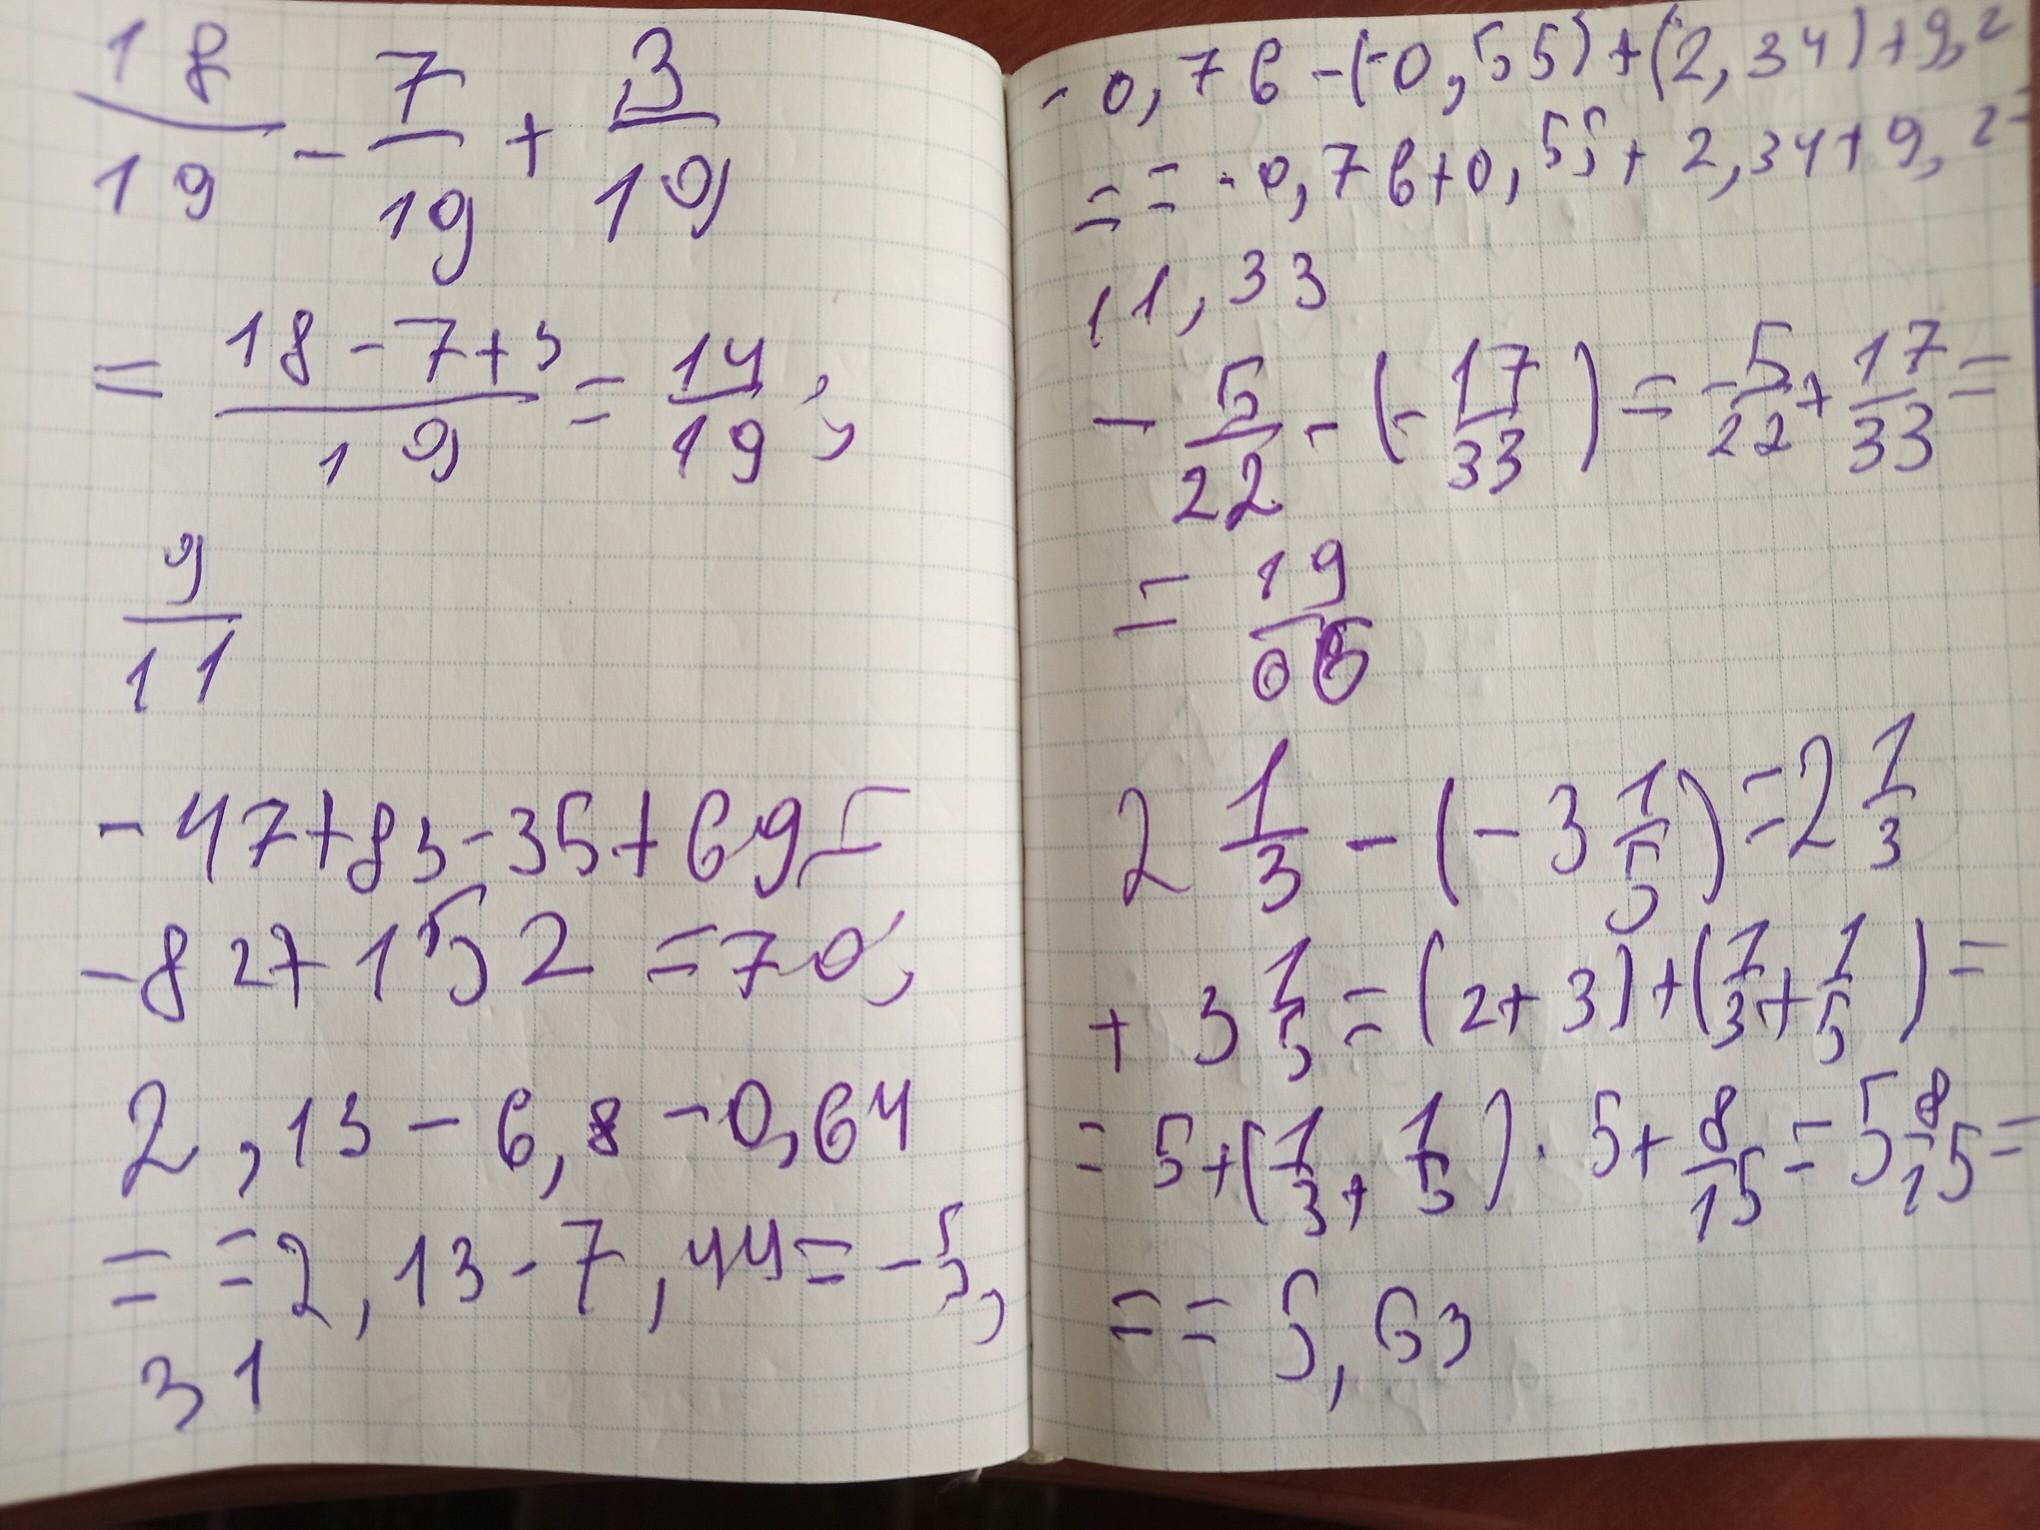 18/19 - 7/19 + 3/19
= (18 - 7 + 3)/19 = 14/19;
9/11
-47+83-35+69=
-82+152=70;
2,13-6,8-0,64
= =2,13-7,44=-5,
31
-0,76-(-0,55)+(2,34)+9,2
= =-0,76+0,55+2,34+9,2=
11,33
- 5/22 - (- 17/33) = - 5/22 + 17/33 =
= 19/66
2 1/3 - (-3 1/5) = 2 1/3
+ 3 1/5 = (2+3)+(1/3+1/5) =
= 5+(1/3+1/5) · 5+ 8/15 = 5 8/15 =
= = 5,63